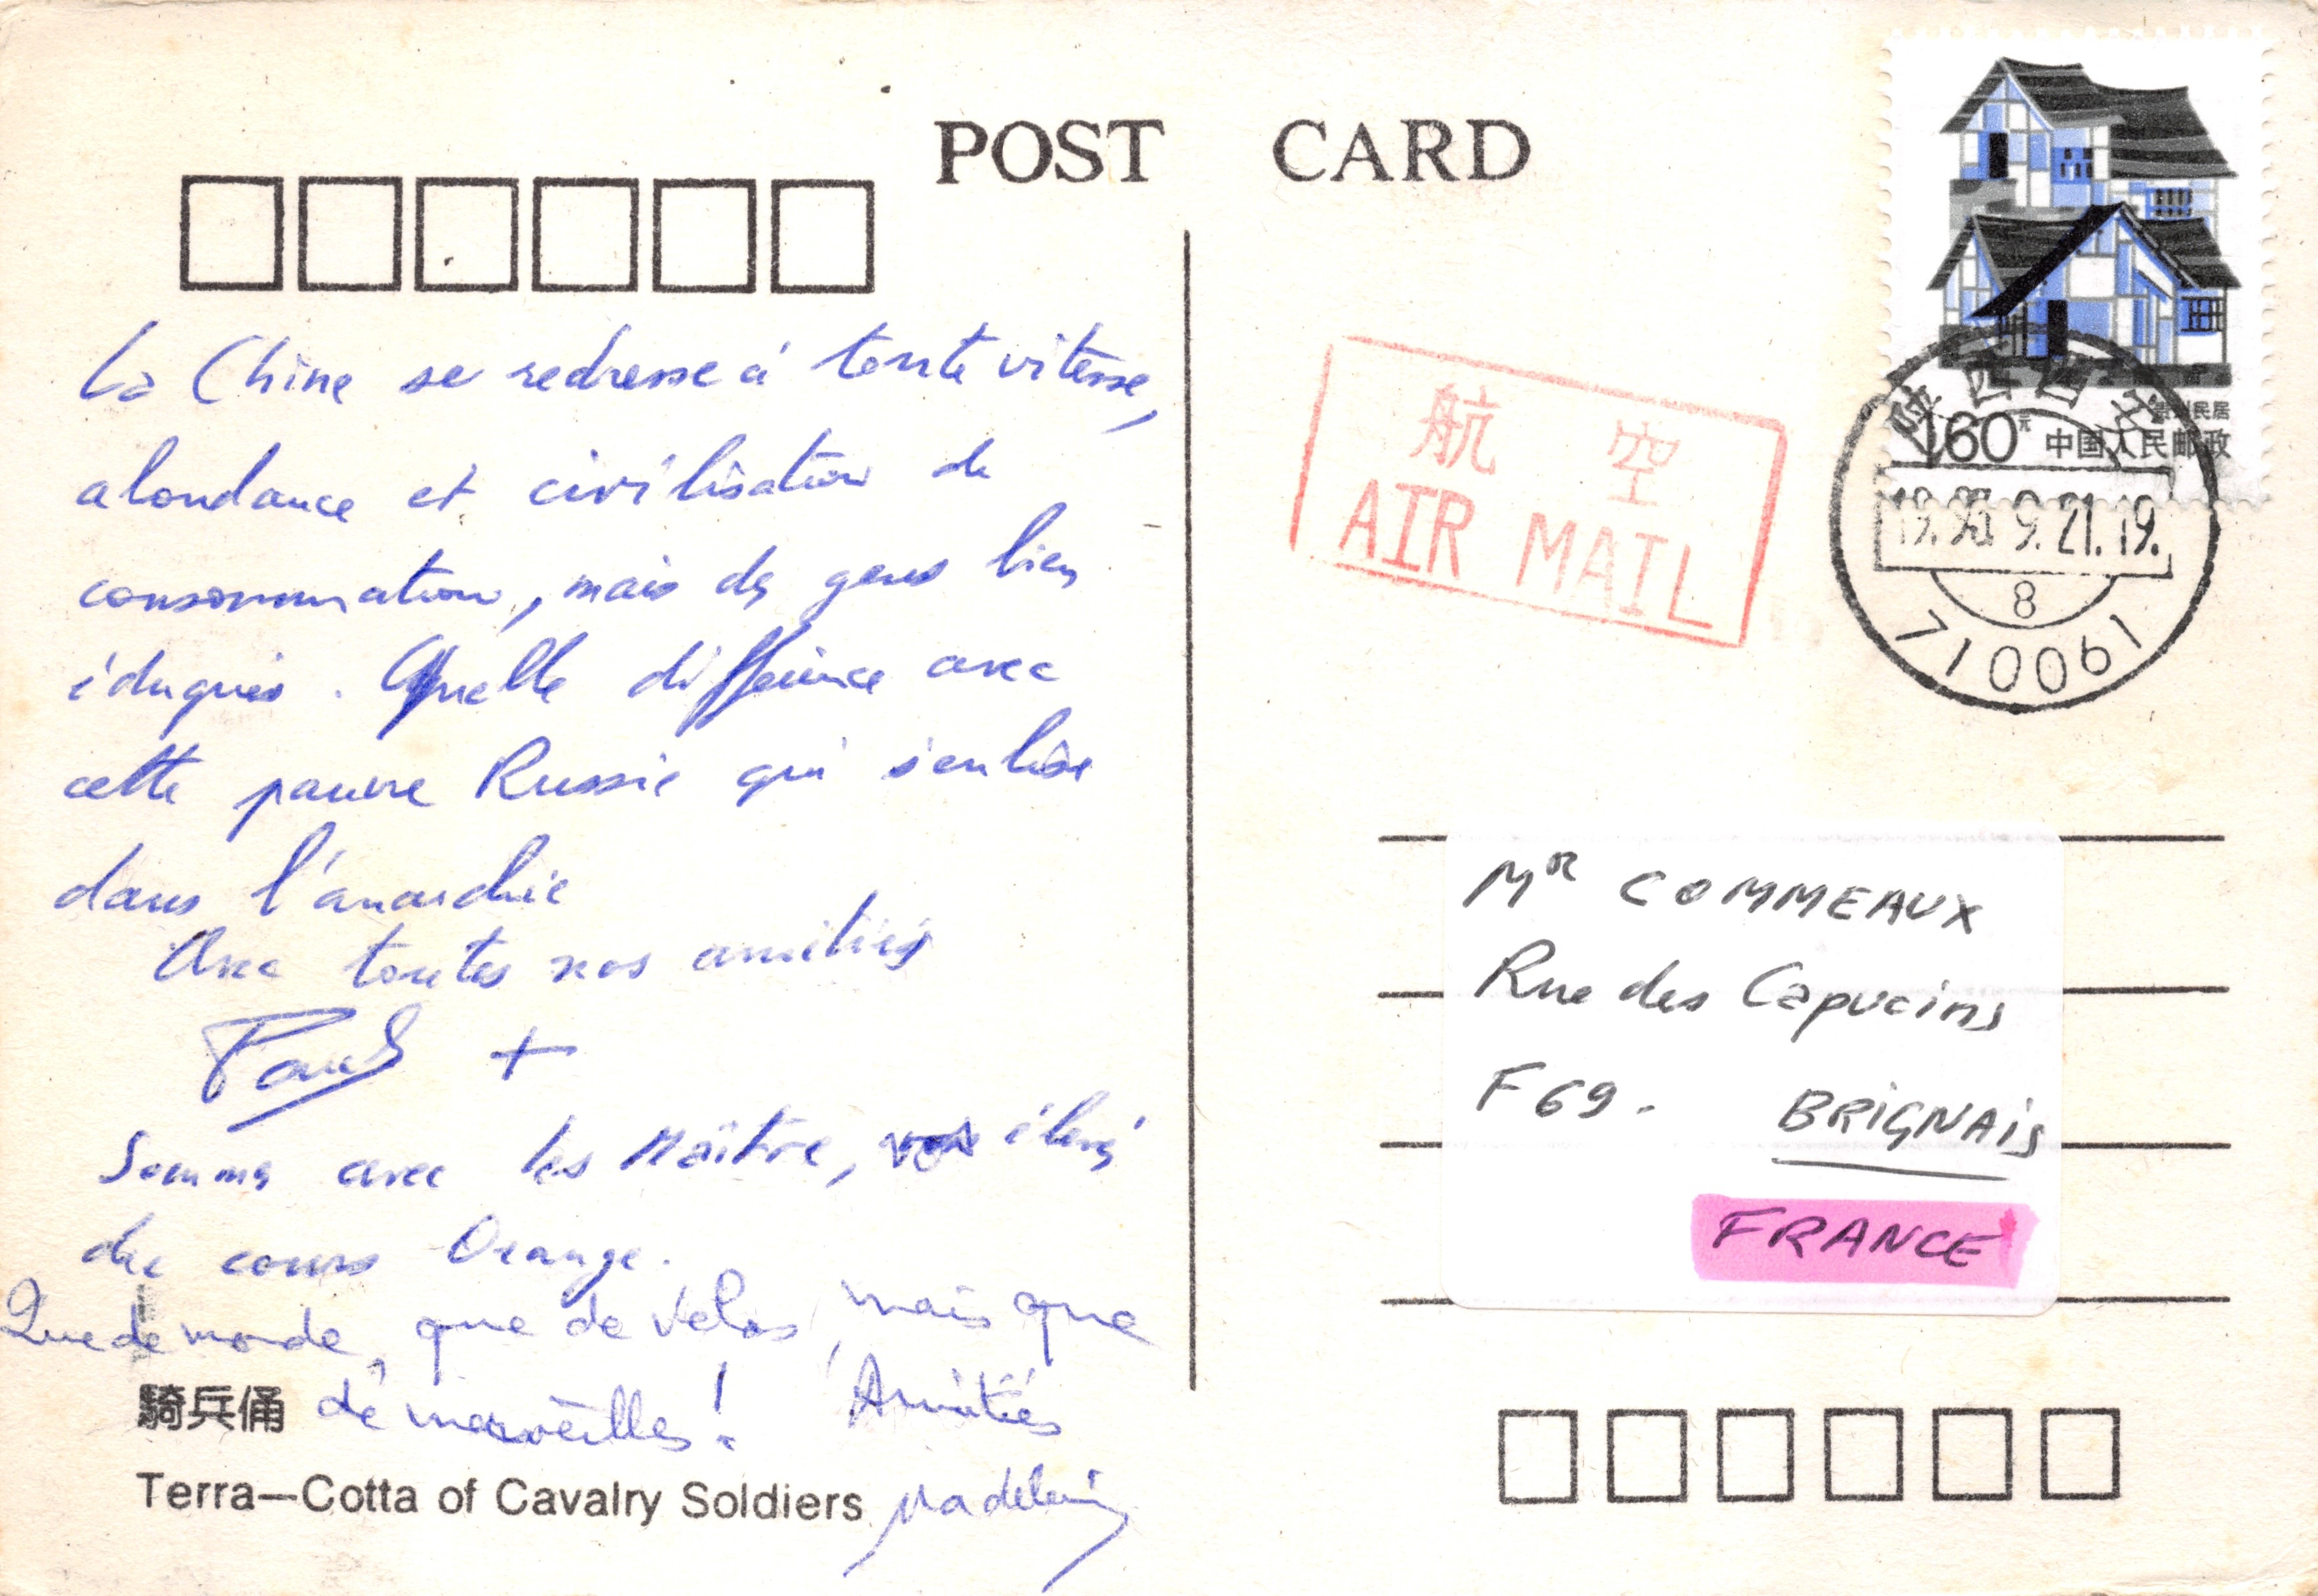 POST CARD
La Chine se redresse à toute vitesse,
abondance et civilisation de
consommation, mais des gens bien
éduqués. Quelle différence avec
cette pauvre Russie qui s'enlise
dans l'anarchie
Avec toutes nos amitiés
Paul +
Sommes avec les Maître, élevés
du cours Orange.
Que de monde, que de vélos, mais que
de merveilles! Amitiés
Madeleine
騎兵俑
Terra—Cotta of Cavalry Soldiers
航空
AIR MAIL
160
中国人民邮政
9.21.19.
8
710061
Mr COMMEAUX
Rue des Capucins
F 69. BRIGNAIS
FRANCE